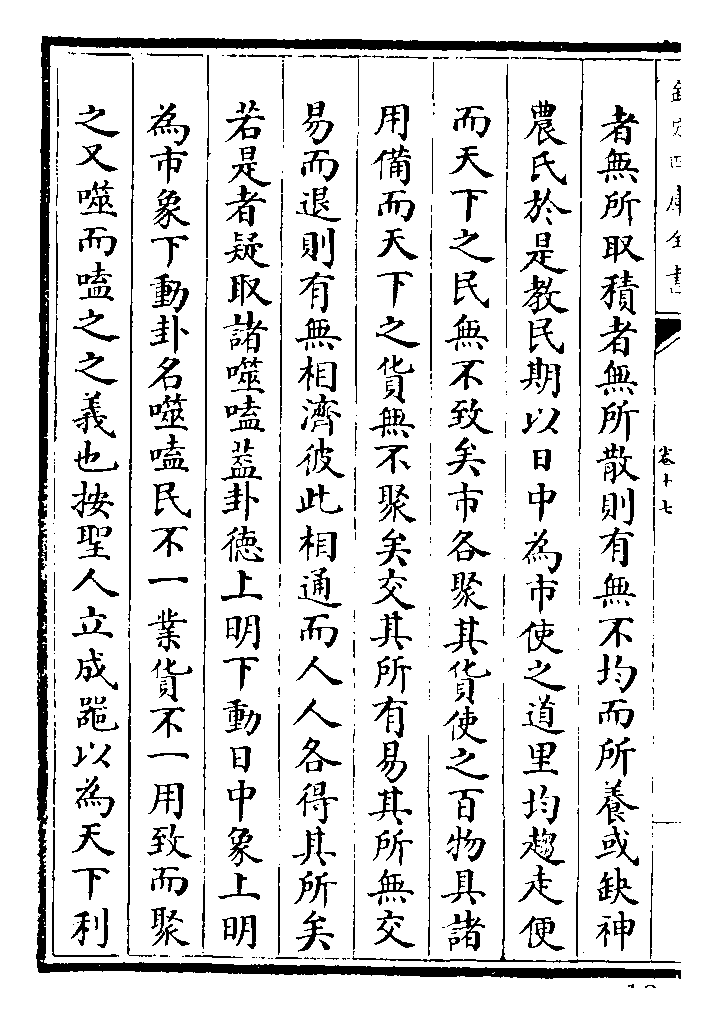 欽定四庫全書
卷十七
者無所取積者無所散則有無不均而所養或缺神
農氏於是教民期以日中為市使之道里均趨走便
而天下之民無不致矣市各聚其貨使之百物具諸
用備而天下之貨無不聚矣交其所有易其所無交
易而退則有無相濟彼此相通而人人各得其所矣
若是者疑取諸噬嗑葢卦德上明下動日中象上明
為市象下動卦名噬嗑民不一業貨不一用致而聚
之又噬而嗑之之義也按聖人立成噐以為天下利